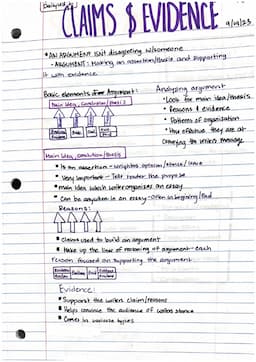 CLAIMS & EVIDENCE
*AN ARGUMENT ISN'T disagreeing w/someone
- ARGUMENT: Having an assertion/thesis and supporting
it with evidence
Basic elements of an Argument:
Main Idea, Conclusion/thesis
Analyzing argument
*Look for main idea/thesis
* Reasons & evidence
* Patterns of organization
* How effective they are at
conveying the writer's message
Main Idea, conclusion/thesis
* Is an assertion -
* Very important - Tells reader the purpose
*main idea which writer organizes an essay
* Can be anywhere in an essay - Often in beginning/end
Reasons:
* Claims used to build an argument
* Make up the line of reasoning of argument - each
reason focused on supporting the argument
Evidence:
* Supports the writers claim/reasons
* Helps convince the audience of writers stance
* Comes in various types